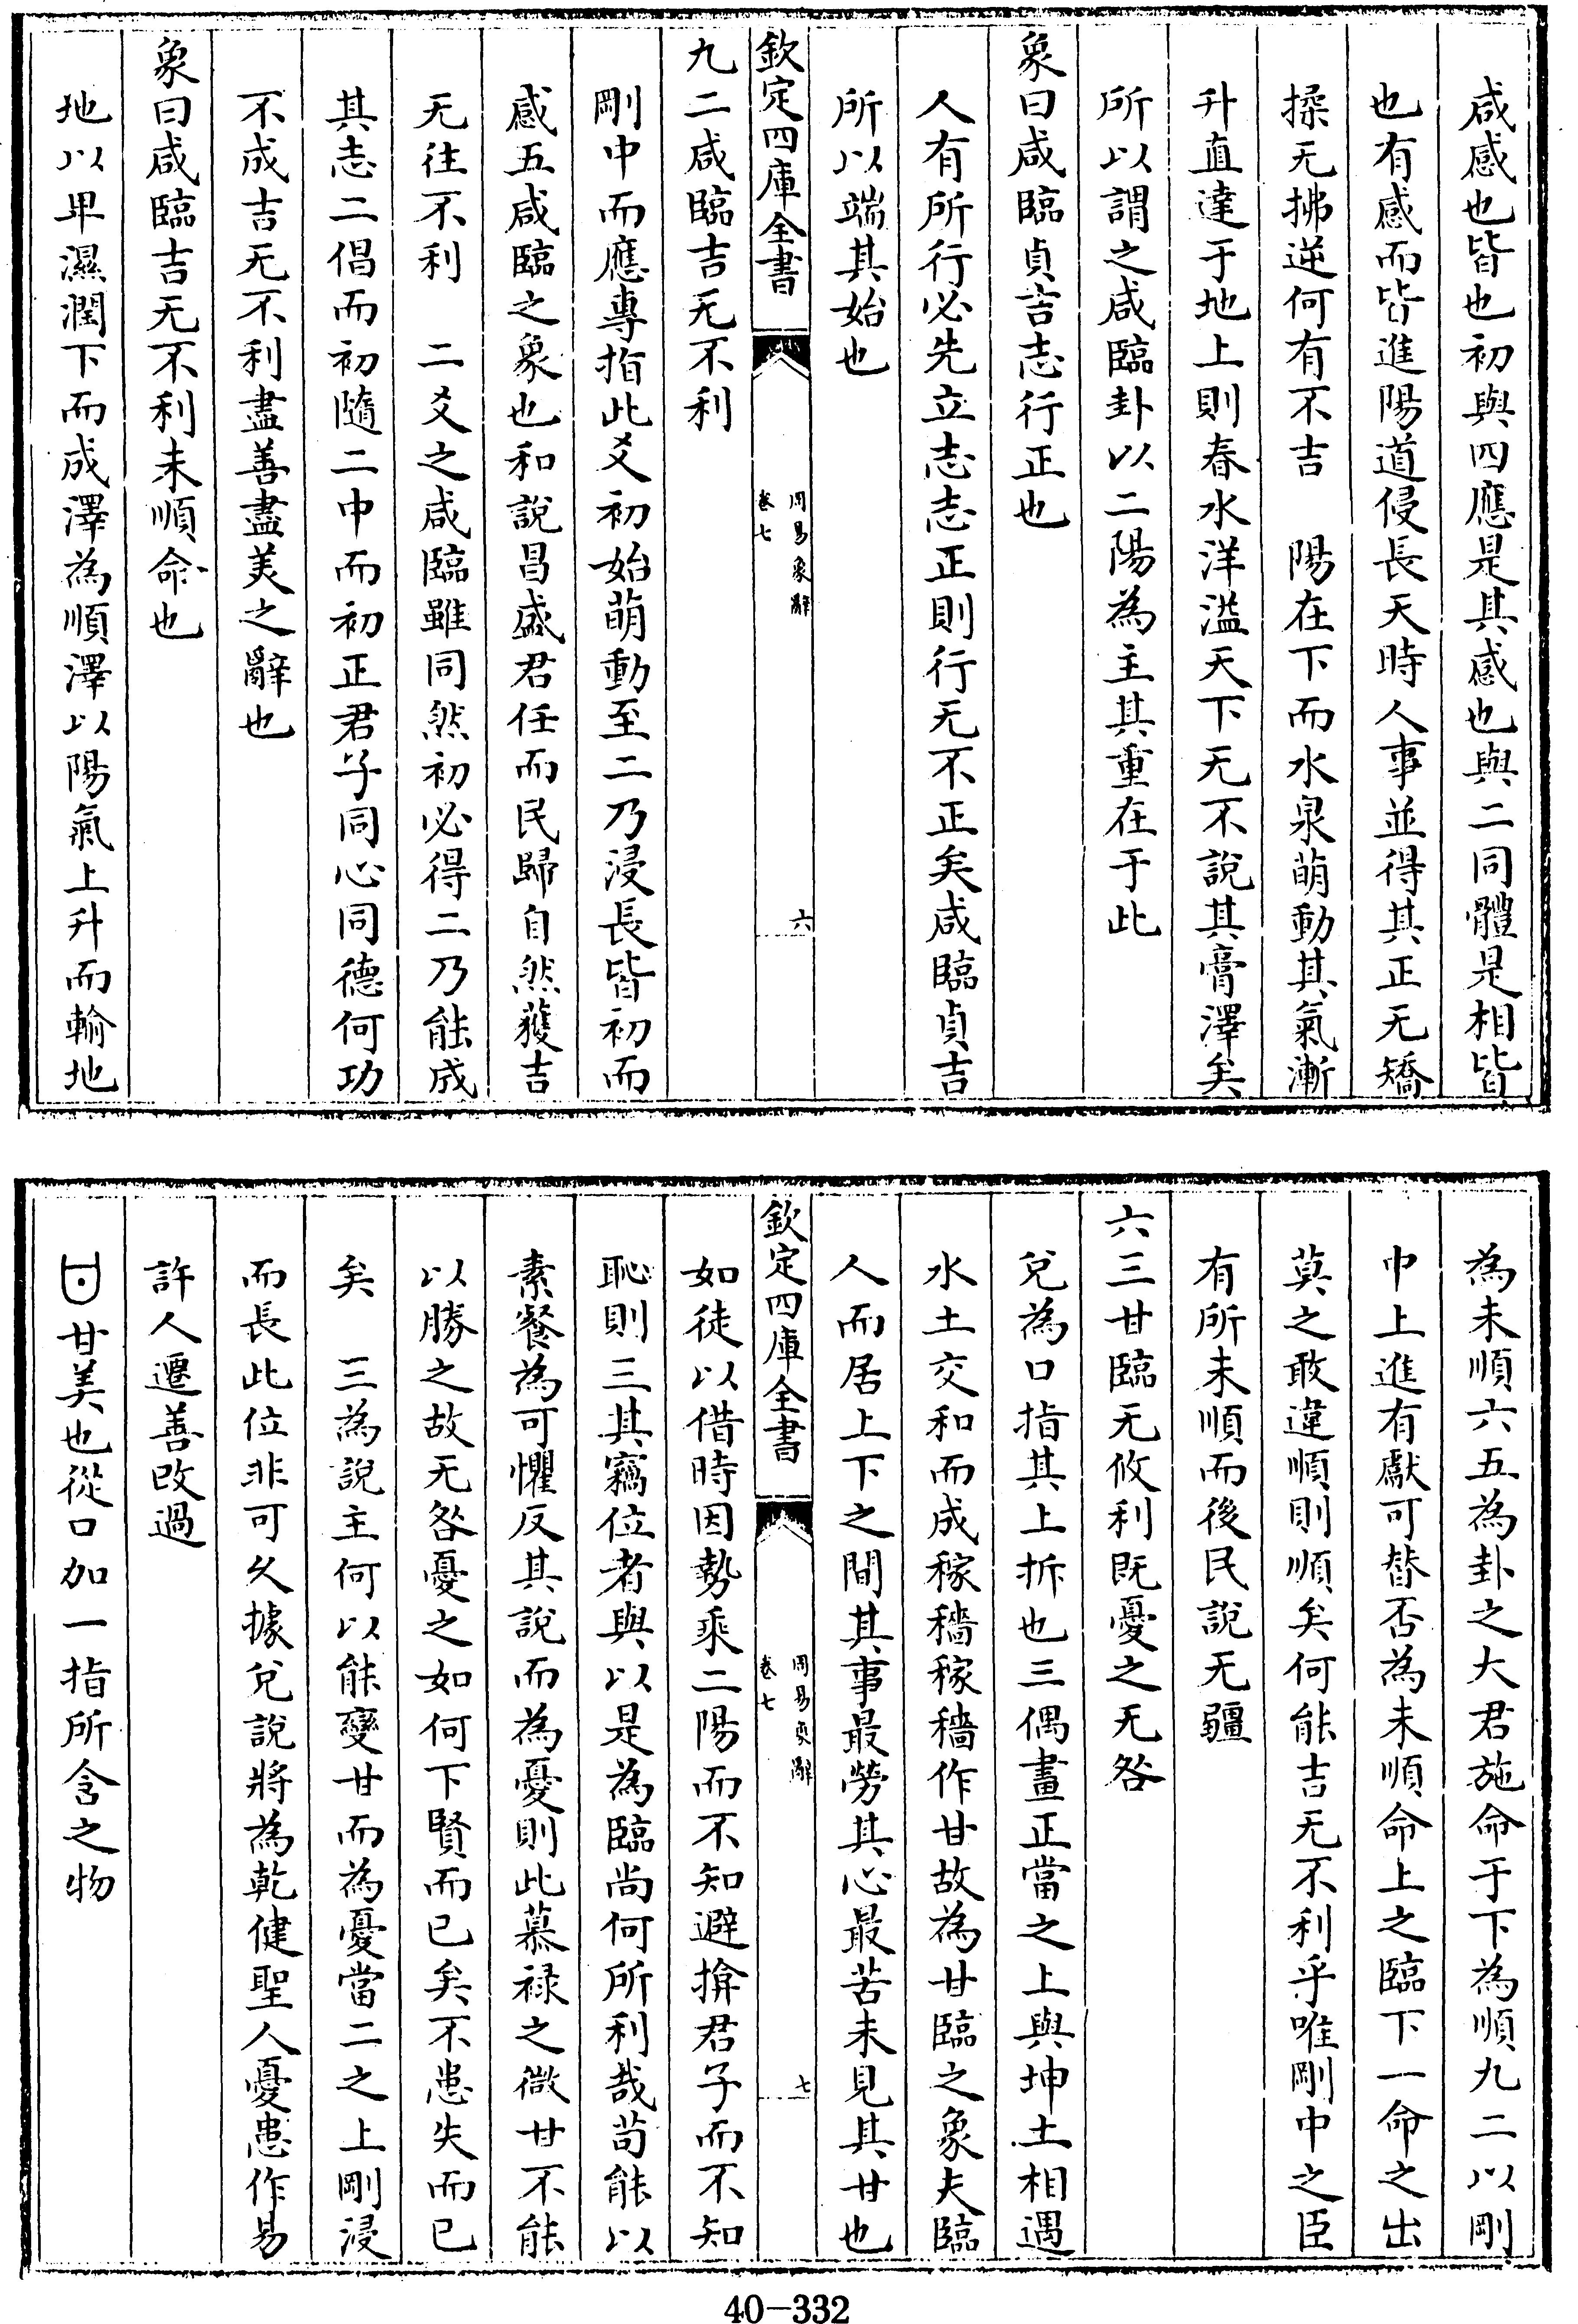 咸感也皆也初與四應是其感也與二同體是相皆
也有感而皆進陽道侵長天時人事並得其正无矯
揉无拂逆何有不吉　陽在下而水泉萌動其氣漸
升直達于地上則春水洋溢天下无不說其膏澤矣
所以謂之咸臨卦以二陽為主其重在于此
象曰咸臨貞吉志行正也
人有所行必先立志志正則行无不正矣咸臨貞吉
所以端其始也
欽定四庫全書
周易象辭
卷七
六
九二咸臨吉无不利
剛中而應專指此爻初始萌動至二乃浸長皆初而
感五咸臨之象也和說昌盛君任而民歸自然獲吉
无往不利　二爻之咸臨雖同然初必得二乃能成
其志二倡而初隨二中而初正君子同心同德何功
不成吉无不利盡善盡美之辭也
象曰咸臨吉无不利未順命也
地以卑濕潤下而成澤為順澤以陽氣上升而輸地
為未順六五為卦之大君施命于下為順九二以剛
中上進有獻可替否為未順命上之臨下一命之出
莫之敢違順則順矣何能吉无不利乎唯剛中之臣
有所未順而後民說无疆
六三甘臨无攸利既憂之无咎
兌為口指其上拆也三偶畫正當之上與坤土相遇
水土交和而成稼穡稼穡作甘故為甘臨之象夫臨
人而居上下之間其事最勞其心最苦未見其甘也
欽定四庫全書
周易象辭
卷七
七
如徒以借時因勢乘二陽而不知避揜君子而不知
恥則三其竊位者與以是為臨尚何所利哉苟能以
素餐為可懼反其說而為憂則此慕祿之微甘不能
以勝之故无咎憂之如何下賢而已矣不患失而已
矣　三為說主何以能變甘而為憂當二之上剛浸
而長此位非可久據兌說將為乾健聖人憂患作易
許人遷善改過
甘美也從口加一指所含之物
40-332